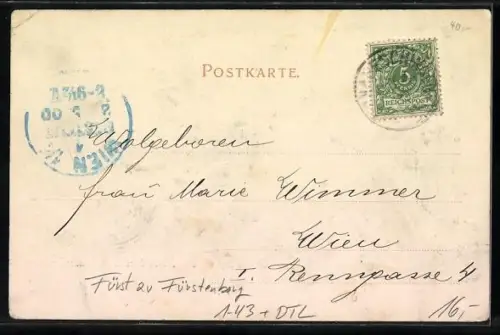 40,-
POSTKARTE.
5
REICHSPOST
WIEN
Wolgeboren
Frau Marie Wimmer
Wien
I. Renngasse 4
Fürst zu Fürstenberg
1-43 + DTL
16,-